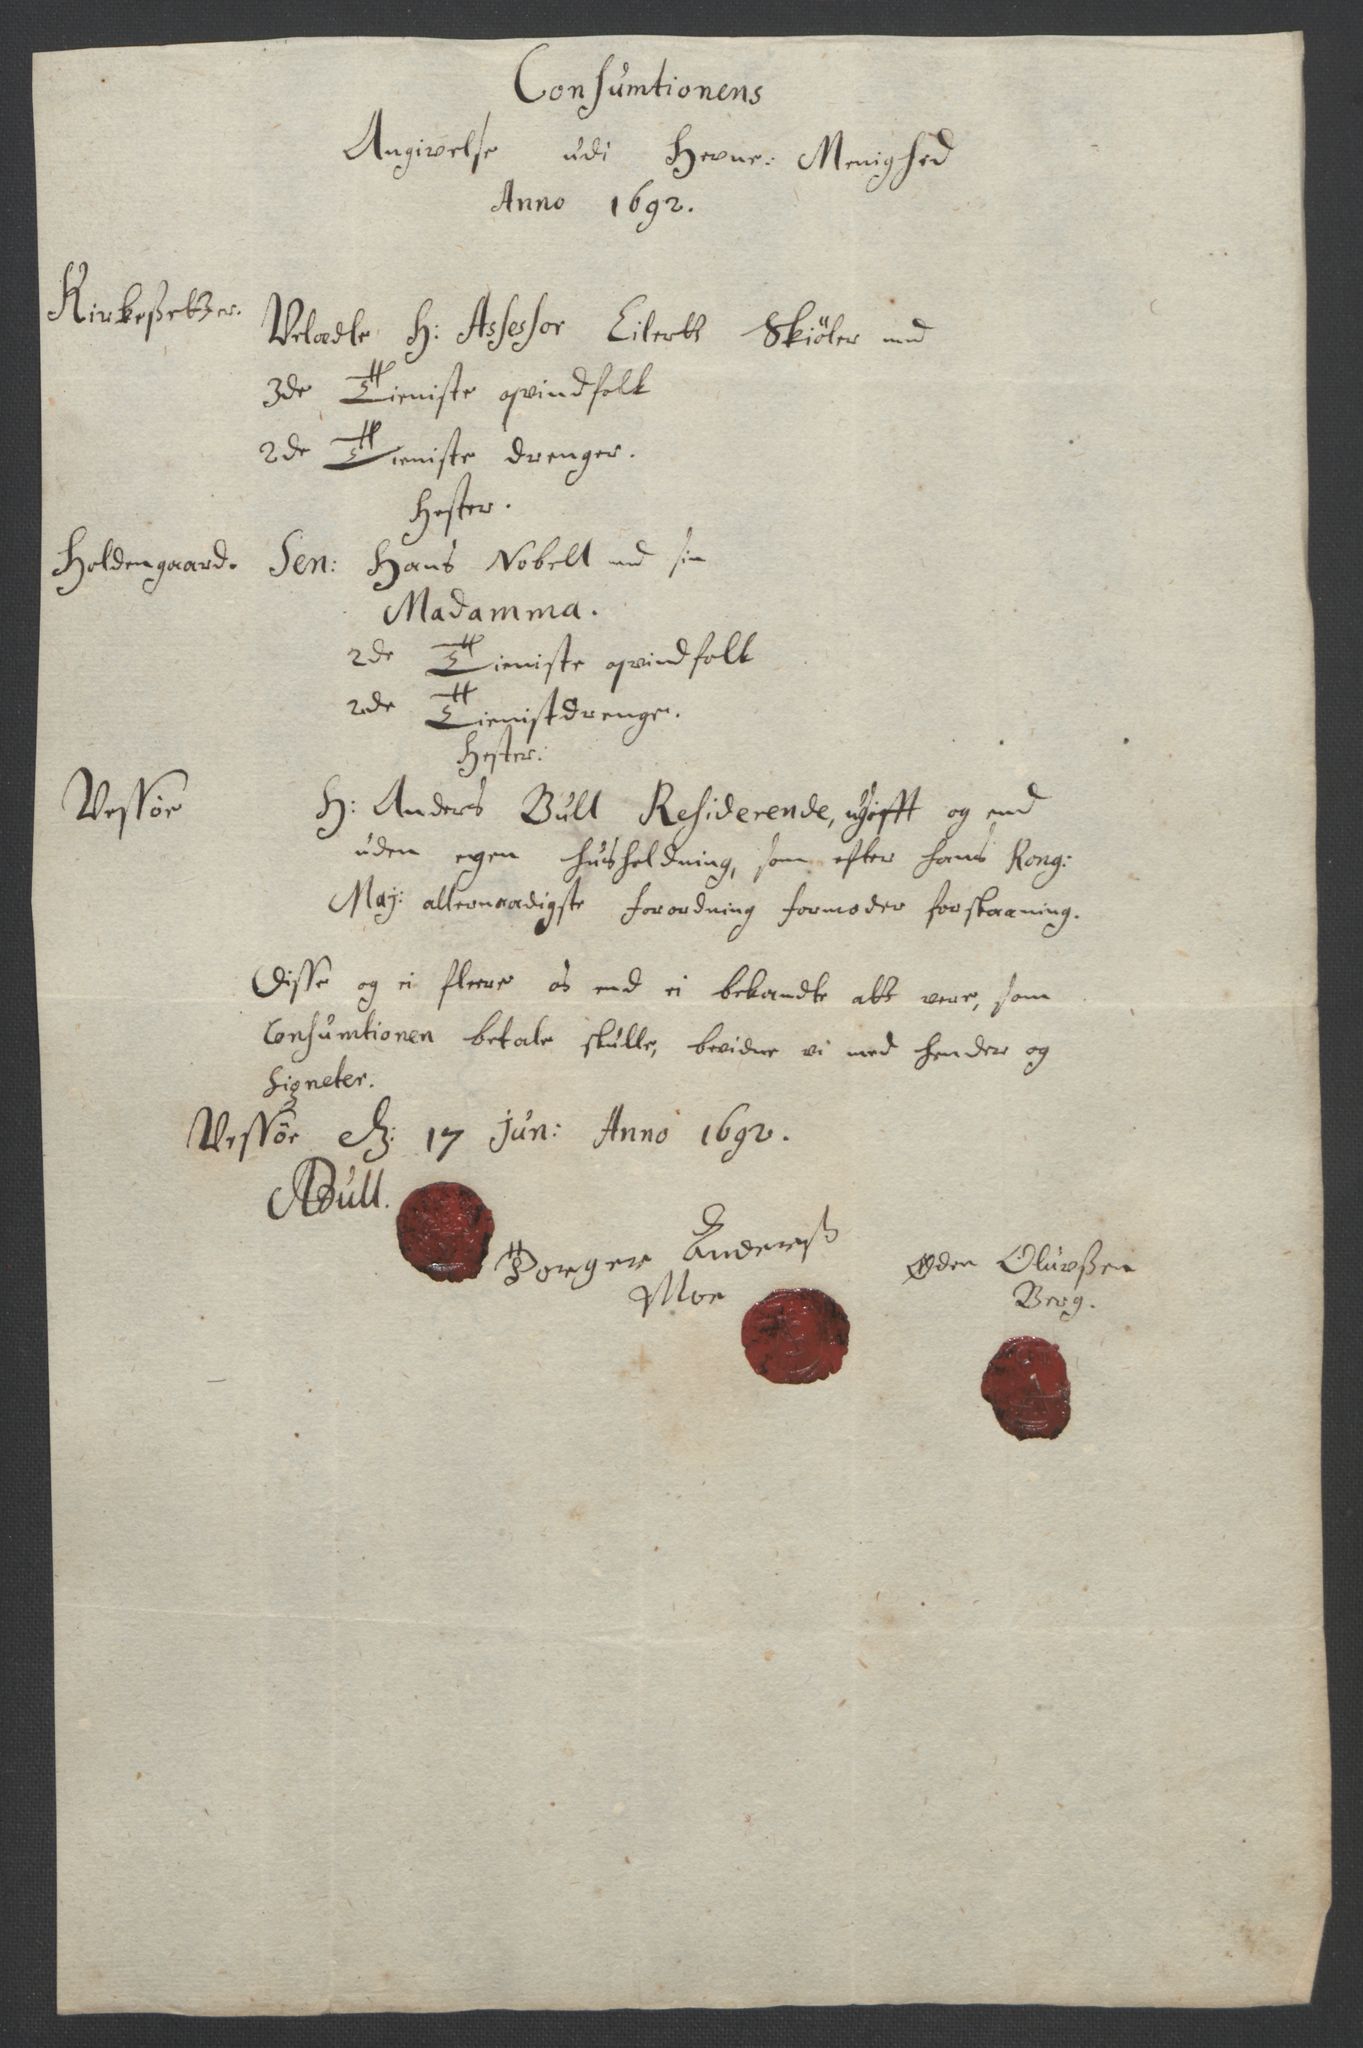 Consumtionens
Angivelse udi Hevne: Menighed
Anno 1692.
Kirkeßetter. Velædle H: Assessor Eilertt Skiöler med
3de Tieniste qvindfolk
2de Tieniste drenger.
Hester.
Holdengaard. Sen: Hans Nobell med sin
Madamma.
2de Tieniste qvindfolk
2de Tienistdrenge.
Hester:
Vessöe H: Anders Bull Residerende, ugifft og end
uden egen husholdning, som efter hans Kong:
Maj: allernaadigste forordning formoder forskaaning.
Disse og ei fleere os end ei bekandte att vere, som
Consumtionen betale skulle, bevidne vi med hender og
Signeter.
Vessöe d: 17 Jun: Anno 1692.
ABull.
Borgere Anderß Oden Oluvßen
Moe Berg.